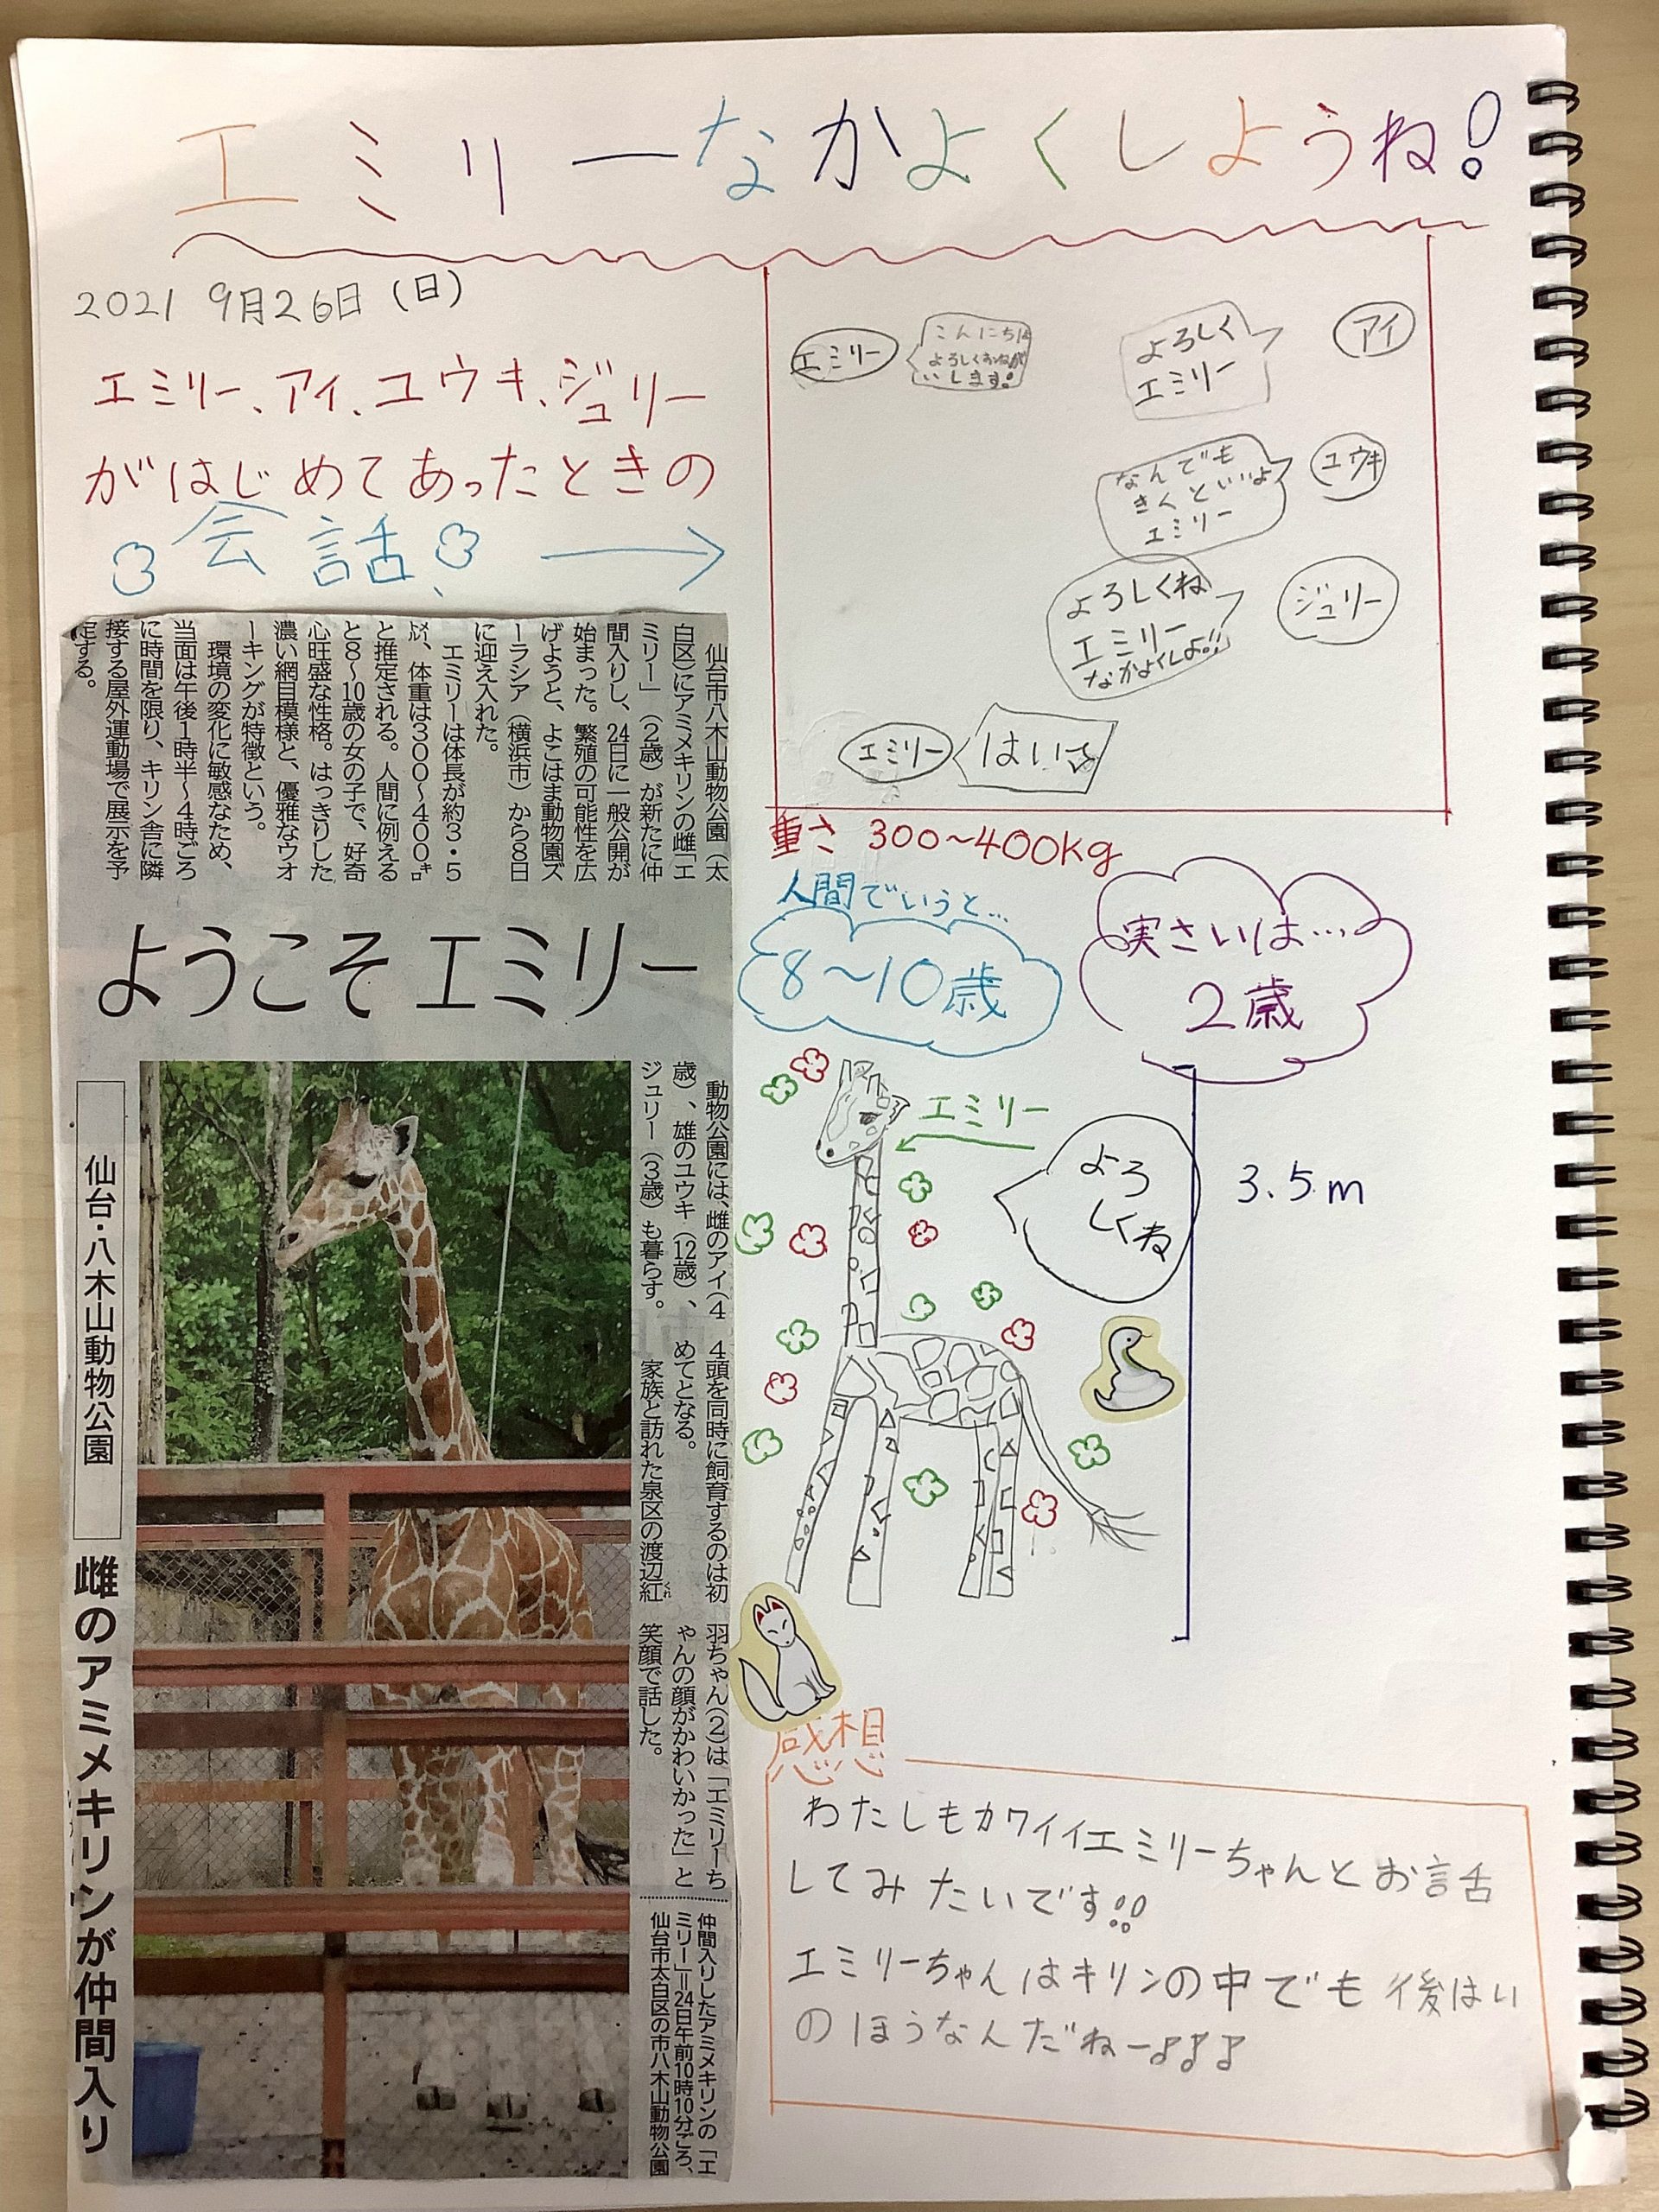 エミリーなかよくしようね!
2021 9月26日(日)
エミリー、アイ、ユウキ、ジュリー
がはじめてあったときの
会話!
エミリー
こんにちは
よろしくおねが
いします!
よろしく
エミリー
アイ
なんでも
きくといいよ
エミリー
ユウキ
よろしくね
エミリー
なかよくしよ!!
ジュリー
エミリー
はいっ
重さ 300~400kg
人間でいうと…
8~10歳
実さいは…
2歳
エミリー
よろ
しくね
3.5m
感想
わたしもカワイイエミリーちゃんとお話
してみたいです!!
エミリーちゃんはキリンの中でも後はい
のほうなんだねー♪♪♪
仙台市八木山動物公園(太
白区)にアミメキリンの雌「エ
ミリー」(2歳)が新たに仲
間入りし、24日に一般公開が
始まった。繁殖の可能性を広
げようと、よこはま動物園ズ
ーラシア(横浜市)から8日
に迎え入れた。
エミリーは体長が約3・5
㍍、体重は300~400㌔
と推定される。人間に例える
と8~10歳の女の子で、好奇
心旺盛な性格。はっきりした
濃い網目模様と、優雅なウオ
ーキングが特徴という。
環境の変化に敏感なため、
当面は午後1時半~4時ごろ
に時間を限り、キリン舎に隣
接する屋外運動場で展示を予
定する。
ようこそエミリー
仙台・八木山動物公園
雌のアミメキリンが仲間入り
動物公園には、雌のアイ(4
歳)、雄のユウキ(12歳)、
ジュリー(3歳)も暮らす。
4頭を同時に飼育するのは初
めてとなる。
家族と訪れた泉区の渡辺紅
羽ちゃん(2)は「エミリーち
ゃんの顔がかわいかった」と
笑顔で話した。
仲間入りしたアミメキリンの「エ
ミリー」=24日午前10時10分ごろ、
仙台市太白区の市八木山動物公園